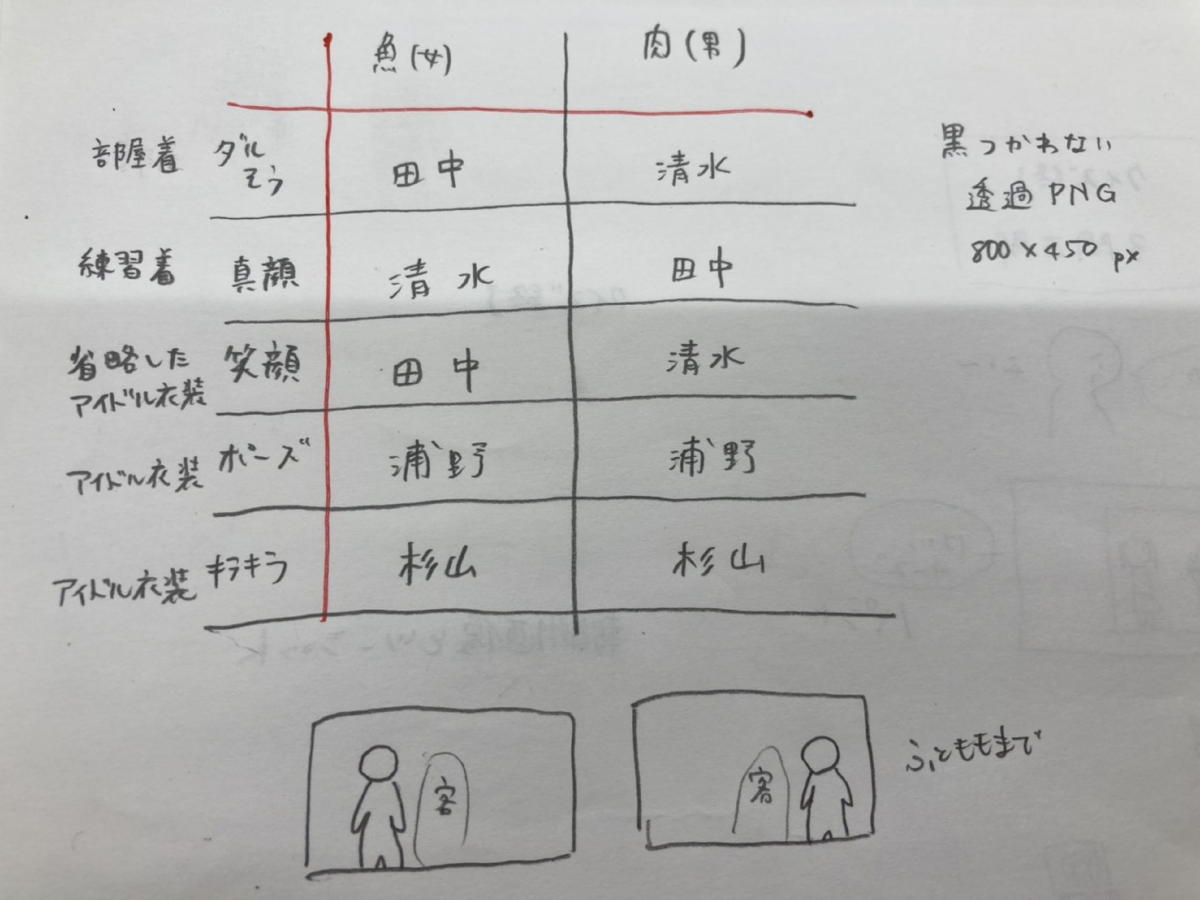 魚(女) 肉(男)
部屋着 ダル
そう 田中 清水
練習着 真顔 清水 田中
省略した
アイドル衣装 笑顔 田中 清水
アイドル衣装 ポーズ 浦野 浦野
アイドル衣装 キラキラ 杉山 杉山
黒つかわない
透過PNG
800×450px
客
客
ふとももまで